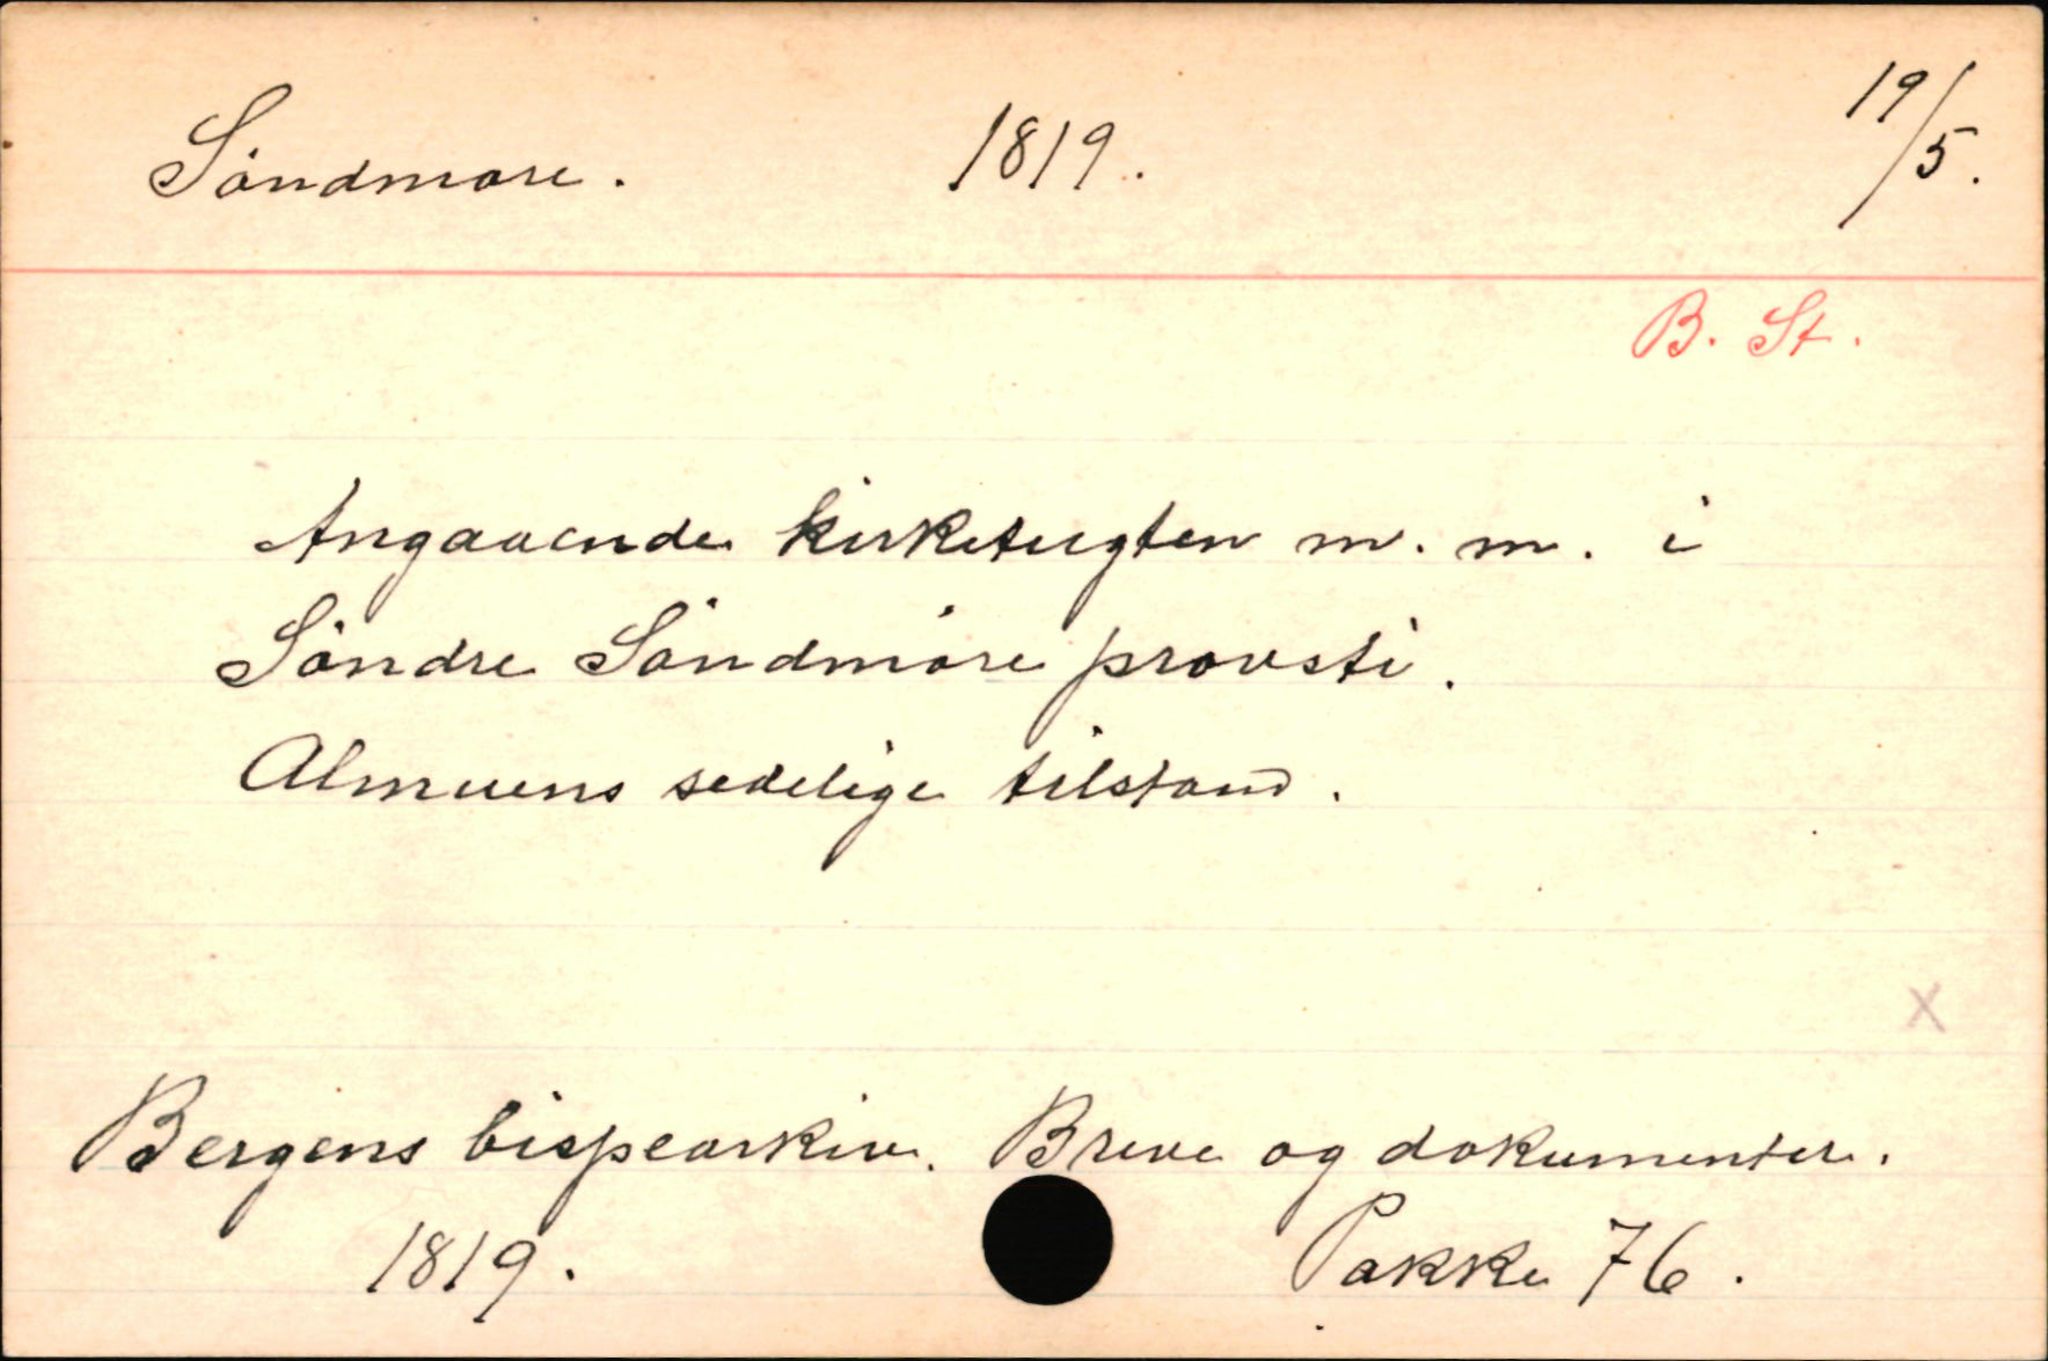 Søndmøre. 1819. 19/5.
B. St.
Angaaende kirketugten m. m. i
Søndre Søndmøre provsti.
Almuens sedelige tilstand.
X
Bergens bispearkiv. Breve og dokumenter.
1819. Pakke 76.